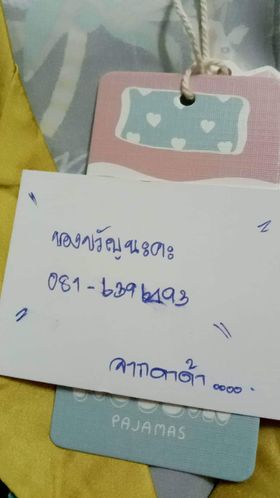 ของขวัญนะคะ
081-6396293
จากดาด้า ....
PAJAMAS